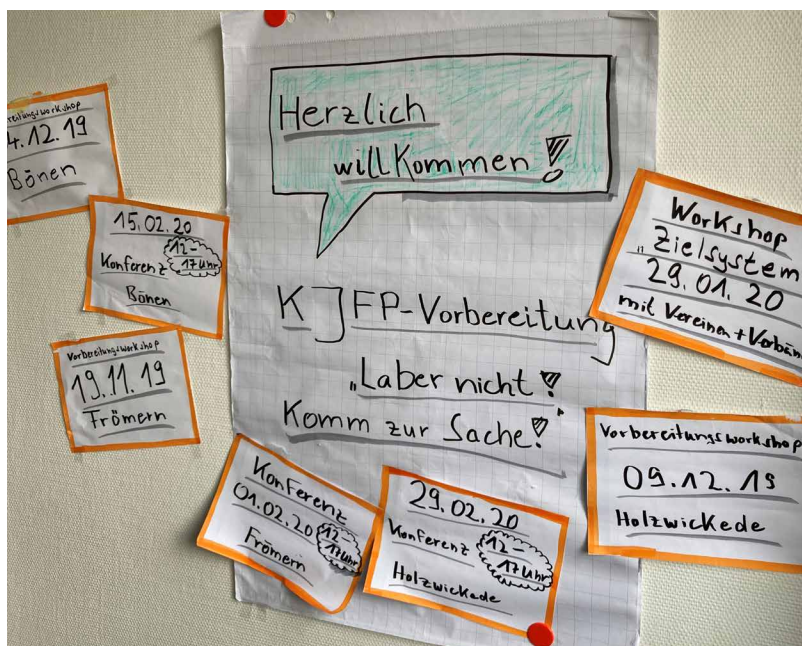 Herzlich
willkommen!
KJFP-Vorbereitung
„Laber nicht!
Komm zur Sache!
4.12.19
Bönen
15.02.20
12-
17Uhr
Konferenz
Bönen
Vorbereitungsworkshop
19.11.19
Frömern
Konferenz
01.02.20
12-
17Uhr
Frömern
29.02.20
Konferenz
12-
17Uhr
Holzwickede
Workshop
„Zielsystem
29.01.20
mit Vereinen+
Vorbereitungsworkshop
09.12.19
Holzwickede